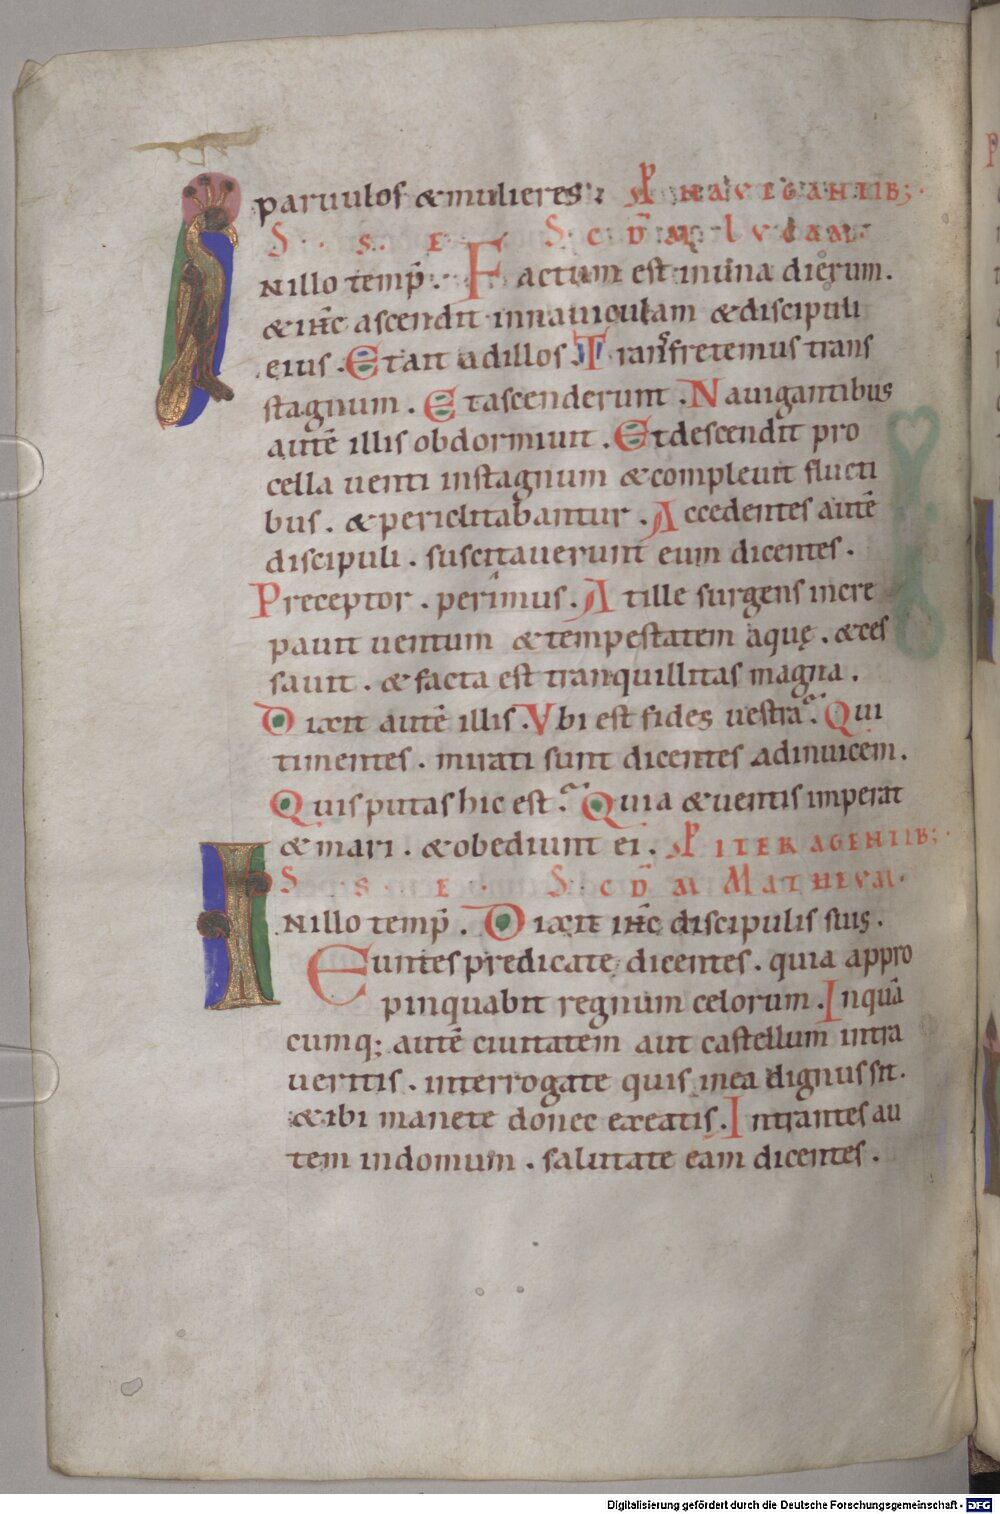 paruulos & mulieres; P NAVIGANTIB;
S. S. E. SCD̄M LVCAM.
INillo temp̄. Factum est inuna dierum.
& ih̄c ascendit innauiculam & discipuli
eius. Et ait adillos. Transfretemus trans
stagnum. Et ascenderunt. Nauigantibus
autē illis obdormiuit. Et descendit pro
cella uenti instagnum & compleuit flucti
bus. & periclitabantur. Accedentes autē
discipuli. suscitauerunt eum dicentes.
Preceptor. perimus. At ille surgens incre
pauit uentum & tempestatem aquę. & ces
sauit. & facta est tranquillitas magna.
Dixit autē illis. Vbi est fides uestra? Qui
timentes. mirati sunt dicentes adinuicem.
Quis putas hic est? Quia & uentis imperat
& mari. & obediunt ei. P ITER AGENTIB;
S. S. E. SCD̄M MATHEVM.
INillo temp̄. Dixit ih̄c discipulis suis.
Euntes predicate dicentes. quia appro
pinquabit regnum celorum. Inquā
cumq; autē ciuitatem aut castellum intra
ueritis. interrogate quis inea dignus sit.
& ibi manete donec exeatis. Intrantes au
tem indomum. salutate eam dicentes.
Digitalisierung gefördert durch die Deutsche Forschungsgemeinschaft - DFG